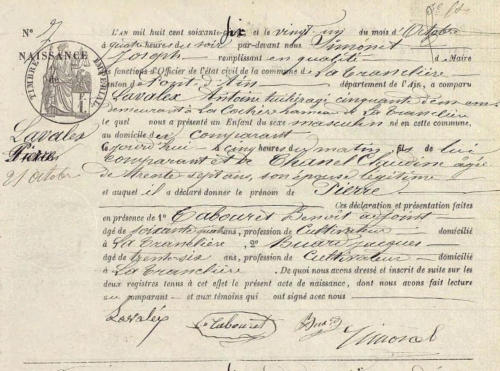 N° 7
NAISSANCE
de
TIMBRE IMPERIAL
Lavalex
Pierre
21 octobre
L'AN mil huit cent soixante-six et le vingt un du mois d'Octobre
à quatre heures du soir par-devant nous Simonet
Joseph remplissant en qualité de Maire
les fonctions d'Officier de l'état civil de la commune de La Tranclière
canton de Pont d'Ain département de l'Ain, a comparu
Lavalex Antoine âgé cinquante deux ans
demeurant à La hameau de La Tranclière
le quel nous a présenté un Enfant du sexe masculin né en cette commune,
au domicile du Comparant
aujourd'hui à cinq heures du matin, fils de lui
Comparant et de Chanel Claudine âgée
de trente sept ans, son épouse légitime
et auquel il a déclaré donner le prénom de Pierre
Ces déclaration et présentation faites
en présence de 1° Tabouret Benoit adjoint
âgé de soixante ans, profession de Cultivateur domicilié
à La Tranclière, 2° Buard Jacques
âgé de trente-six ans, profession de Cultivateur domicilié
à La Tranclière. De quoi nous avons dressé et inscrit de suite sur les
deux registres tenus à cet effet le présent acte de naissance, dont nous avons fait lecture
au comparant et aux témoins qui ont signé avec nous
Lavalex
Tabouret
Buard
Simonet